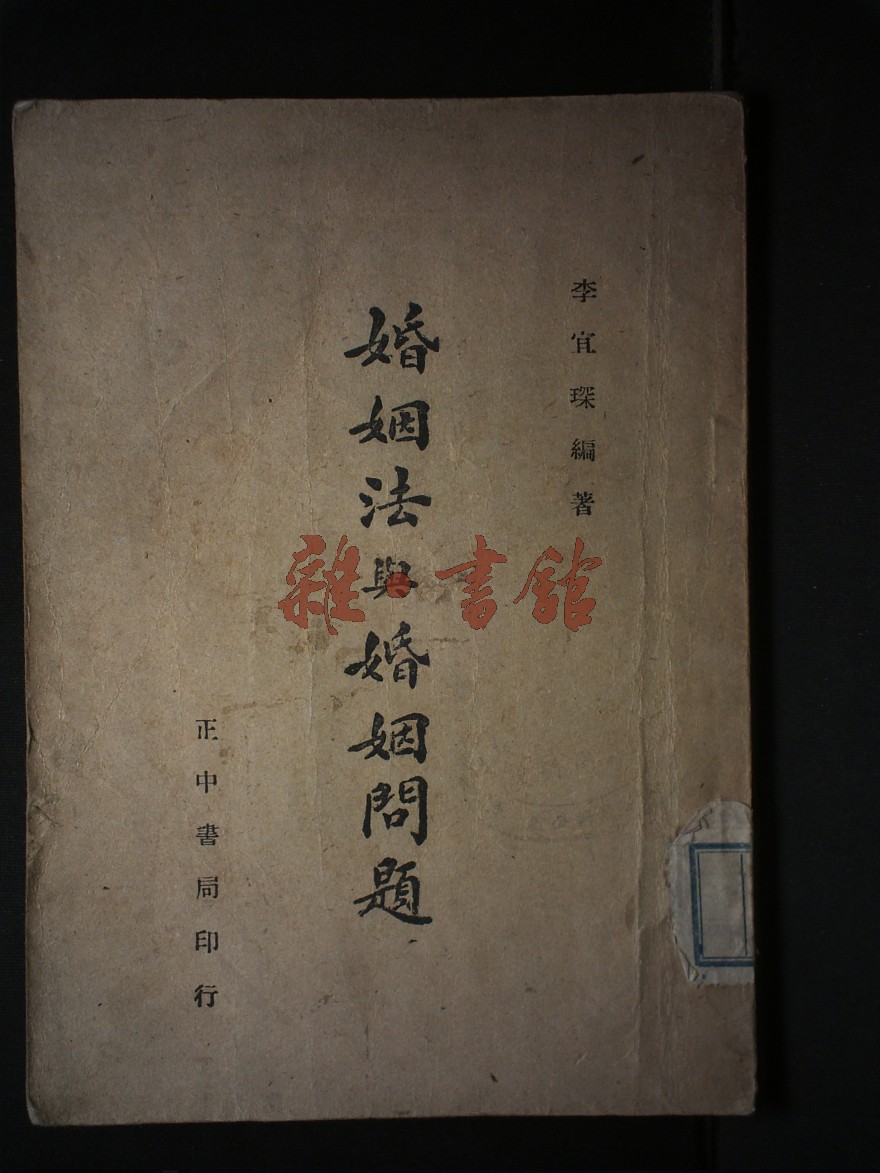 李宜琛編著
婚姻法與婚姻問題
正中書局印行
雜·書館